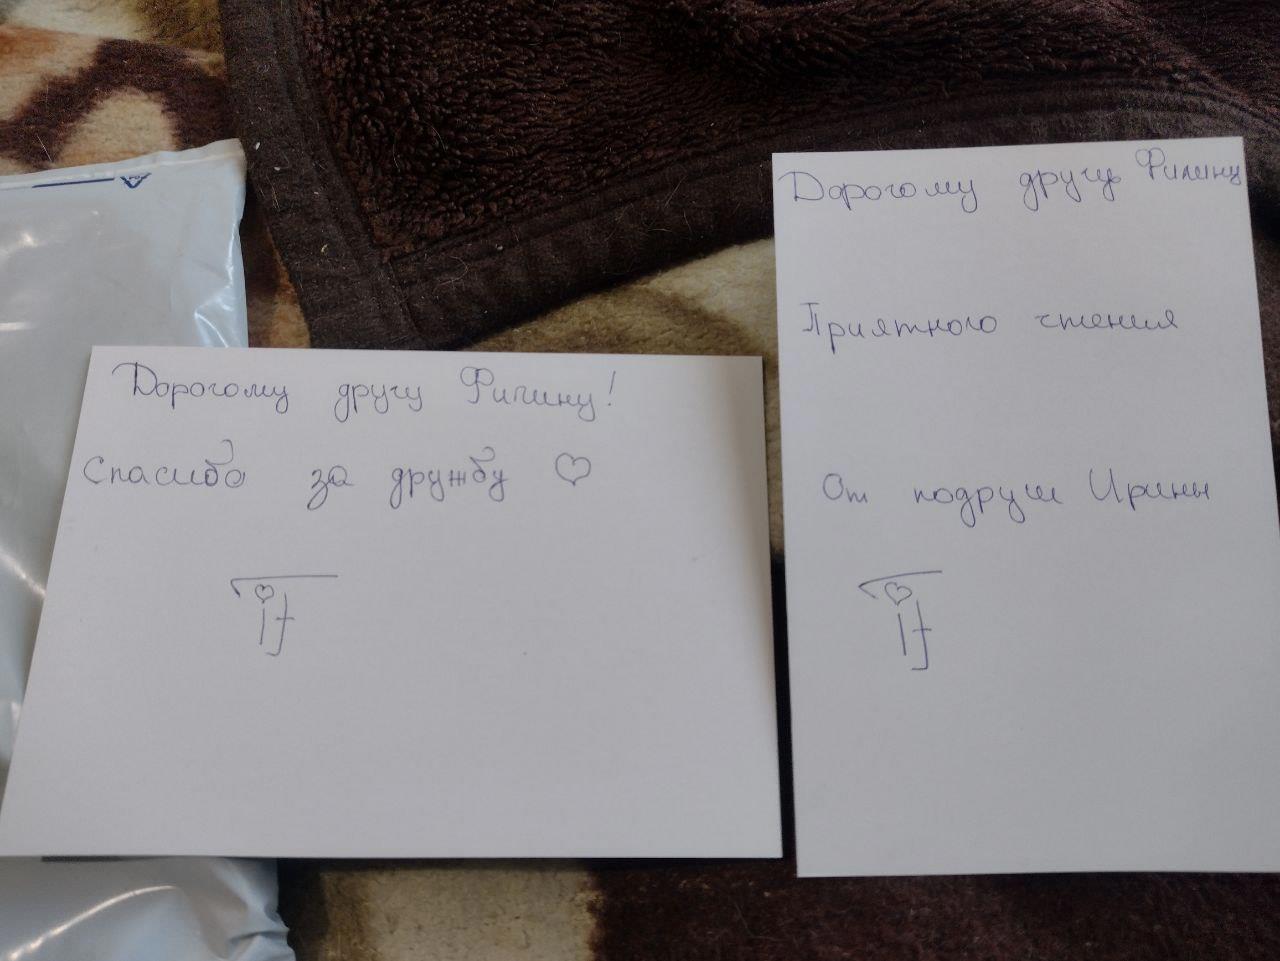 Дорогому другу Филину!
Спасибо за дружбу ♡
Дорогому другу Филину
Приятного чтения
От подруги Ирины